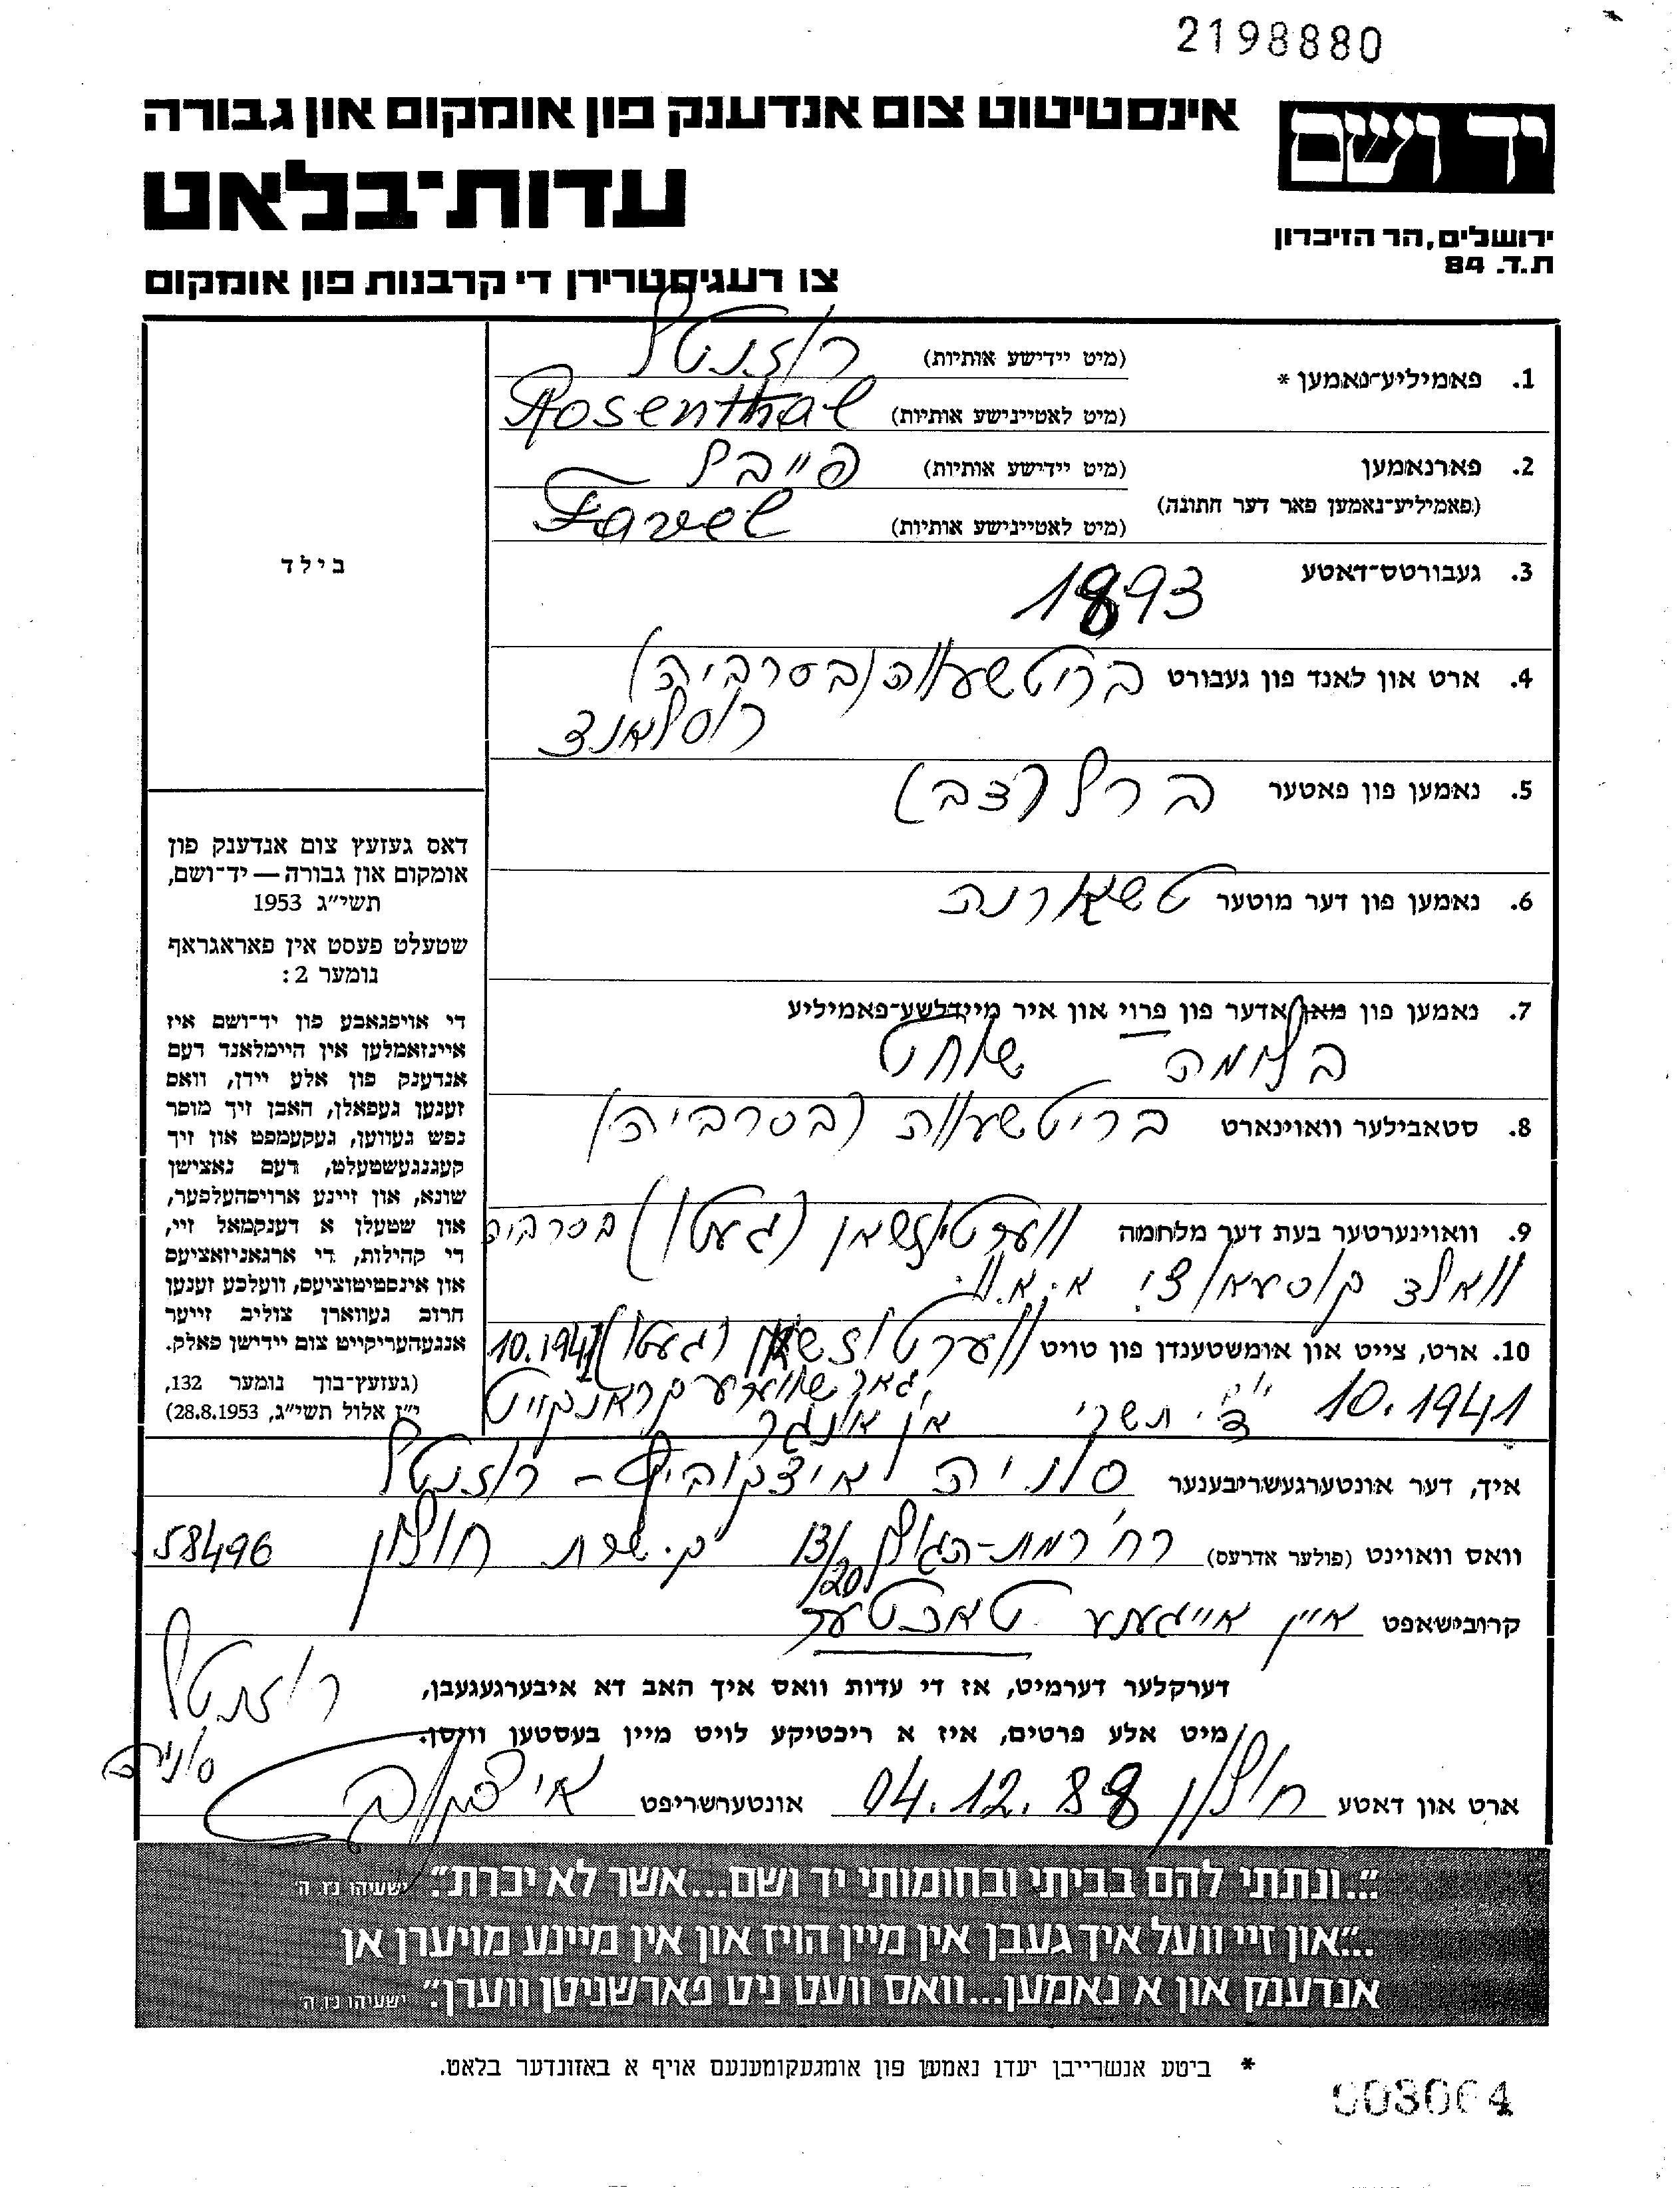 2198880
יד ושם
אינסטיטוט צום אנדענק פון אומקום און גבורה
עדות־בלאט
ירושלים, הר הזיכרון
ת.ד. 84
צו רעגיסטרירן די קרבנות פון אומקום
1. פאמיליע־נאמען *
(מיט יידישע אותיות) רוזנטל
(מיט לאטיינישע אותיות) Rosenthal
2. פארנאמען (מיט יידישע אותיות) פייבל
(פאמיליע־נאמען פאר דער חתונה)
(מיט לאטיינישע אותיות) Favel
3. געבורטס־דאטע 1893
4. ארט און לאנד פון געבורט בריטשעווה (בסרביה)
רוסלאנד
5. נאמען פון פאטער ברל (צבי)
6. נאמען פון דער מוטער טשארנה
7. נאמען פון מאן אדער פון פרוי און איר מיידלשע־פאמיליע
בלומה שוחט
8. סטאבילער וואוינארט בריטשעווה (בסרביה)
9. וואוינערטער בעת דער מלחמה ווערטוזשאן (געטו) בסרביה
וואלד קוסעאוצי א.א.וו.
10. ארט, צייט און אומשטענדן פון טויט ווערטוזשאן (געטו) 10.1941
10.1941 תשרי אין הונגר קראנקייט
בילד
דאס געזעץ צום אנדענק פון
אומקום און גבורה — יד־ושם,
תשי״ג 1953
שטעלט פעסט אין פאראגראף
נומער 2:
די אויפגאבע פון יד־ושם איז
איינזאמלען אין היימלאנד דעם
אנדענק פון אלע יידן, וואס
זענען געפאלן, האבן זיך מוסר
נפש געווען, געקעמפט און זיך
קעגנגעשטעלט, דעם נאצישן
שונא, און זיינע ארויסהעלפער,
און שטעלן א דענקמאל זיי,
די קהילות, די ארגאניזאציעס
און אינסטיטוציעס, וועלכע זענען
חרוב געווארן צוליב זייער
אנגעהעריקייט צום יידישן פאלק.
(געזעץ־בוך נומער 132,
י״ז אלול תשי״ג, 28.8.1953)
איך, דער אונטערגעשריבענער סוניה איצקוביץ - רוזנטל
וואס וואוינט (פולער אדרעס) רח׳ רמת-הגולן 13/20 ק. שרת חולון 58496
קרובישאפט איין אייגענע טאכטער
דערקלער דערמיט, אז די עדות וואס איך האב דא איבערגעגעבן,
מיט אלע פרטים, איז א ריכטיקע לויט מיין בעסטען וויסן.
רוזנטל
סוניה
ארט און דאטע חולון 04.12.88 אונטערשריפט איצקוביץ
״...ונתתי להם בביתי ובחומותי יד ושם...אשר לא יכרת״. ישעיהו נו, ה
״...און זיי וועל איך געבן אין מיין הויז און אין מיינע מויערן אן
אנדענק און א נאמען...וואס וועט ניט פארשניטן ווערן״. ישעיהו נו, ה
* ביטע אנשרייבן יעדן נאמען פון אומגעקומענעם אויף א באזונדער בלאט.